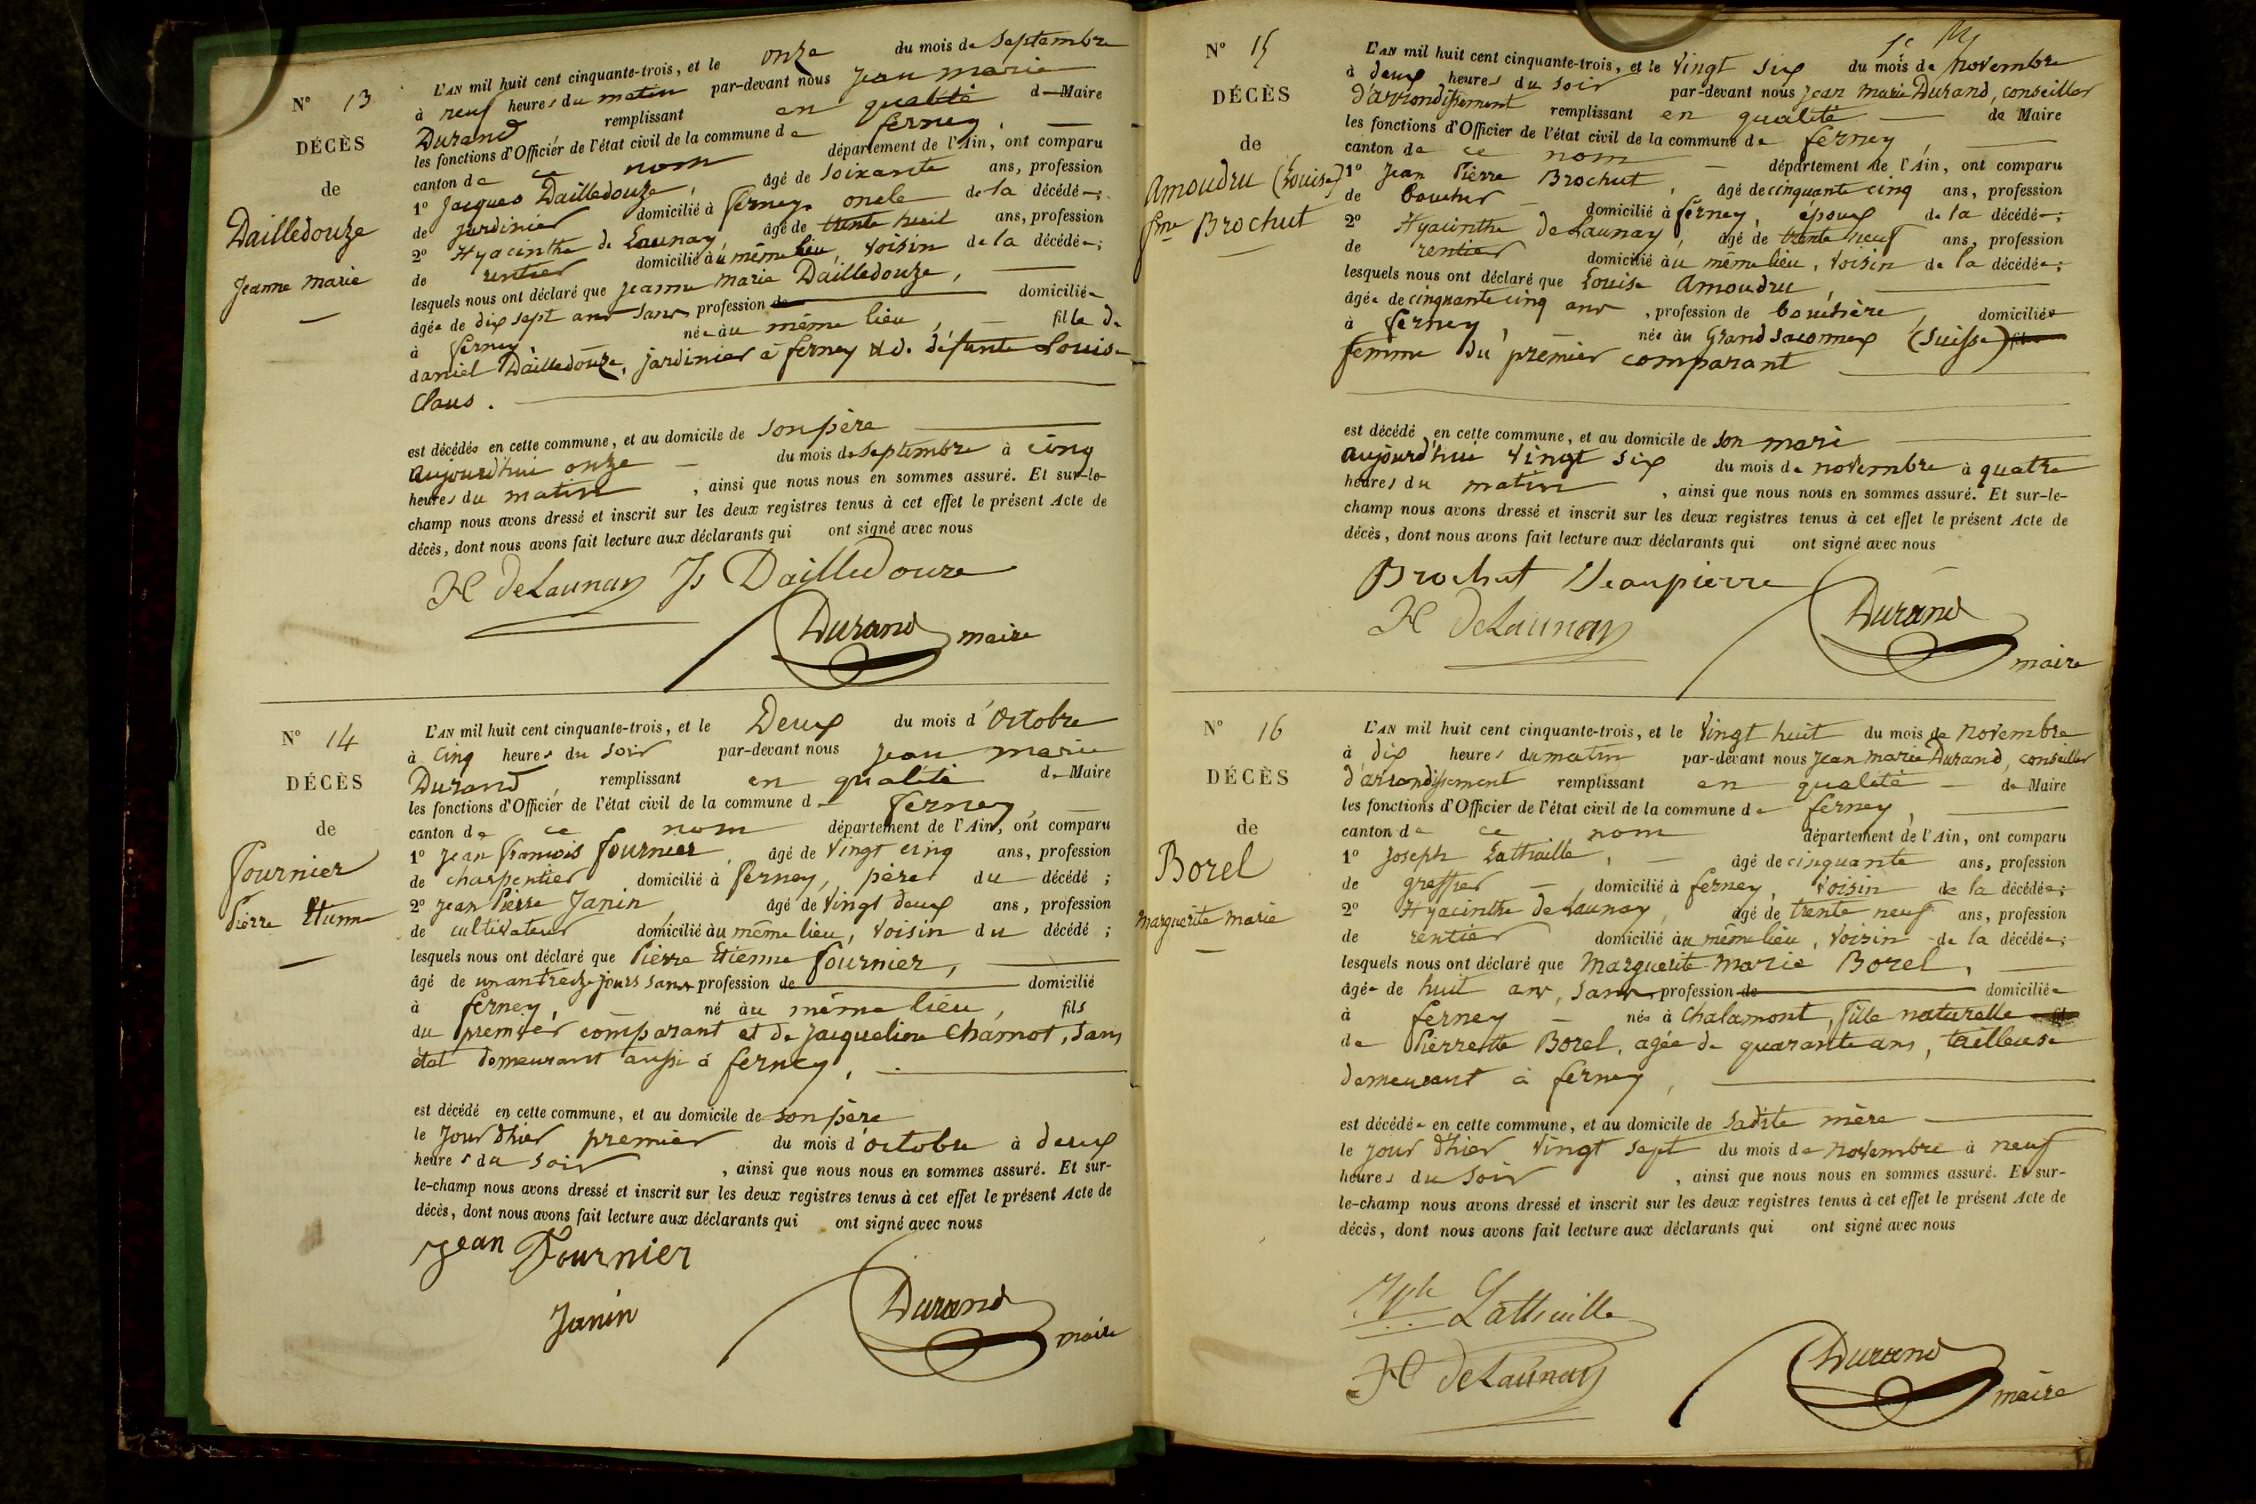 N° 13
DÉCÈS
de
Dailledouze
Jeanne Marie
L'AN mil huit cent cinquante-trois, et le onze du mois de Septembre
à neuf heures du matin par-devant nous Jean Marie
Durand, remplissant en qualité de Maire
les fonctions d'Officier de l'état civil de la commune de ferney,
canton de ce nom département de l'Ain, ont comparu
1° Jacques Dailledouze, âgé de Soixante ans, profession
de jardinier domicilié à ferney, oncle de la décédée;
2° Hyacinthe de Launay, âgé de trente huit ans, profession
de rentier domicilié au même lieu, voisin de la décédée;
lesquels nous ont déclaré que Jeanne Marie Dailledouze,
âgée de dix sept ans sans profession de domiciliée
à ferney, née au même lieu, fille de
daniel Dailledouze, jardinier à ferney & de défunte Louise
Claus.
est décédée en cette commune, et au domicile de son père
aujourd'hui onze du mois de Septembre à cinq
heures du matin, ainsi que nous nous en sommes assuré. Et sur-le-
champ nous avons dressé et inscrit sur les deux registres tenus à cet effet le présent Acte de
décès, dont nous avons fait lecture aux déclarants qui ont signé avec nous
H deLaunay Js Dailledouze
Durand maire
N° 14
DÉCÈS
de
Fournier
Pierre Etienne
L'AN mil huit cent cinquante-trois, et le Deux du mois d'Octobre
à Cinq heures du soir par-devant nous Jean Marie
Durand, remplissant en qualité de Maire
les fonctions d'Officier de l'état civil de la commune de ferney,
canton de ce nom département de l'Ain, ont comparu
1° Jean françois fournier, âgé de vingt cinq ans, profession
de charpentier domicilié à ferney, père du décédé;
2° Jean Pierre Janin, âgé de vingt deux ans, profession
de cultivateur domicilié au même lieu, voisin du décédé;
lesquels nous ont déclaré que Pierre Etienne fournier,
âgé de un an treize jours sans profession de domicilié
à ferney, né au même lieu, fils
du premier comparant et de Jacqueline Chamot, sans
état demeurant aussi à ferney,
est décédé en cette commune, et au domicile de son père
le jour d'hier premier du mois d'octobre à deux
heures du soir, ainsi que nous nous en sommes assuré. Et sur-
le-champ nous avons dressé et inscrit sur les deux registres tenus à cet effet le présent Acte de
décès, dont nous avons fait lecture aux déclarants qui ont signé avec nous
Jean Fournier
Janin
Durand maire
N° 15
DÉCÈS
de
Amoudru (Louise)
fme Brochut
L'AN mil huit cent cinquante-trois, et le vingt six du mois de Novembre
à deux heures du soir par-devant nous Jean Marie Durand, conseiller
d'arrondissement remplissant en qualité de Maire
les fonctions d'Officier de l'état civil de la commune de ferney,
canton de ce nom département de l'Ain, ont comparu
1° Jean Pierre Brochut, âgé de cinquante cinq ans, profession
de boucher domicilié à ferney, époux de la décédée;
2° Hyacinthe deLaunay, âgé de trente neuf ans, profession
de rentier domicilié au même lieu, voisin de la décédée;
lesquels nous ont déclaré que Louise Amoudru,
âgée de cinquante cinq ans, profession de bouchère, domiciliée
à ferney, née au Grand Saconnex (Suisse)
femme du premier comparant
est décédé en cette commune, et au domicile de son mari
aujourd'hui vingt six du mois de novembre à quatre
heures du matin, ainsi que nous nous en sommes assuré. Et sur-le-
champ nous avons dressé et inscrit sur les deux registres tenus à cet effet le présent Acte de
décès, dont nous avons fait lecture aux déclarants qui ont signé avec nous
Brochut Jeanpierre
H deLaunay
Durand
maire
N° 16
DÉCÈS
de
Borel
Marguerite Marie
L'AN mil huit cent cinquante-trois, et le vingt huit du mois de Novembre
à dix heures du matin par-devant nous Jean Marie Durand, conseiller
d'arrondissement remplissant en qualité de Maire
les fonctions d'Officier de l'état civil de la commune de ferney,
canton de ce nom département de l'Ain, ont comparu
1° Joseph Lathuille, âgé de cinquante ans, profession
de greffier domicilié à ferney, voisin de la décédée;
2° Hyacinthe deLaunay, âgé de trente neuf ans, profession
de rentier domicilié au même lieu, voisin de la décédée;
lesquels nous ont déclaré que Marguerite Marie Borel,
âgée de huit ans, sans profession de domiciliée
à ferney née à Chalamont, fille naturelle
de Pierrette Borel, agée de quarante ans, tailleuse
demeurant à ferney,
est décédée en cette commune, et au domicile de sadite mère
le jour d'hier vingt sept du mois de novembre à neuf
heures du soir, ainsi que nous nous en sommes assuré. Et sur-
le-champ nous avons dressé et inscrit sur les deux registres tenus à cet effet le présent Acte de
décès, dont nous avons fait lecture aux déclarants qui ont signé avec nous
Jph Lathuille
H deLaunay
Durand
maire